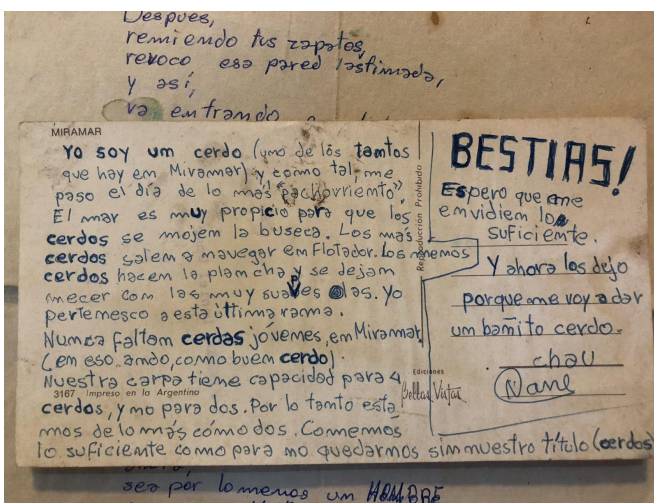 Después,
remiendo tus zapatos,
revoco esa pared lastimada,
y así,
va entrando
MIRAMAR
Yo soy um cerdo (umo de los tamtos
que hay em Miramar) y como tal, me
paso el día de lo más "pachorriemto"
El mar es muy propicio para que los
cerdos se mojem la buseca. Los más
cerdos salem a mavegar em Flotador. Los memos
cerdos hacem la plamcha y se dejam
mecer com las muy suaves olas. Yo
pertemesco a esta última rama.
Numca faltam cerdas jóvemes, em Miramar
(em eso amdo, como buem cerdo).
Nuestra carpa tieme capacidad para 4
3167 Impreso en la Argentina
cerdos, y mo para dos. Por lo tamto esta
mos de lo más cómodos. Comemos
lo suficiemte como para mo quedarmos sim muestro título (cerdos)
Reproducción Prohibida
Ediciones
Bellas Vistas
BESTIAS!
Espero que me
emvidiem lo
suficiemte.
Y ahora los dejo
porque me voy a dar
um bamito cerdo.
chau
Name
sea por lo memos um HOMBRE